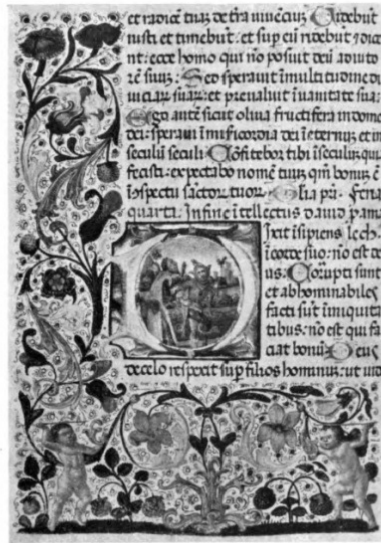 et radicē tuaz de tra viuēciuz Uidebūt
iusti et timebūt: et sup eū ridebūt ⁊ dicē
nt: ecce homo qui nō posuit deū adiuto
rē suuz: Sed sperauit ī multitudine di
uiciaꝝ suaꝝ: et preualuit ī uanitate sua:
Ego autē sicut oliua fructifera in domo
dei: speraui ī misericordia dei ī eternuz et in
seculū seculi Cōfitebor tibi ī seculuz quia
fecisti: et expectabo nomē tuuz qm̄ bonuz ē
ī cōspectu sāctoꝝ tuoꝝ Glia pri. Feria
quarta. In finē ītellectus dauid psalm
Dixit īsipiens
ī corde suo: nō est de
us: Corrupti sunt
et abhominabiles
facti sūt ī iniquita
tibus: nō est qui fa
ciat bonuz Deus
de celo respexit sup filios hominuz: ut uid